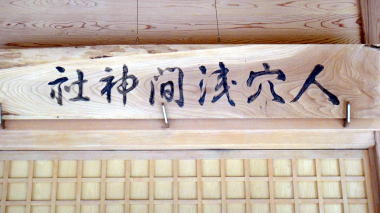 人穴浅間神社